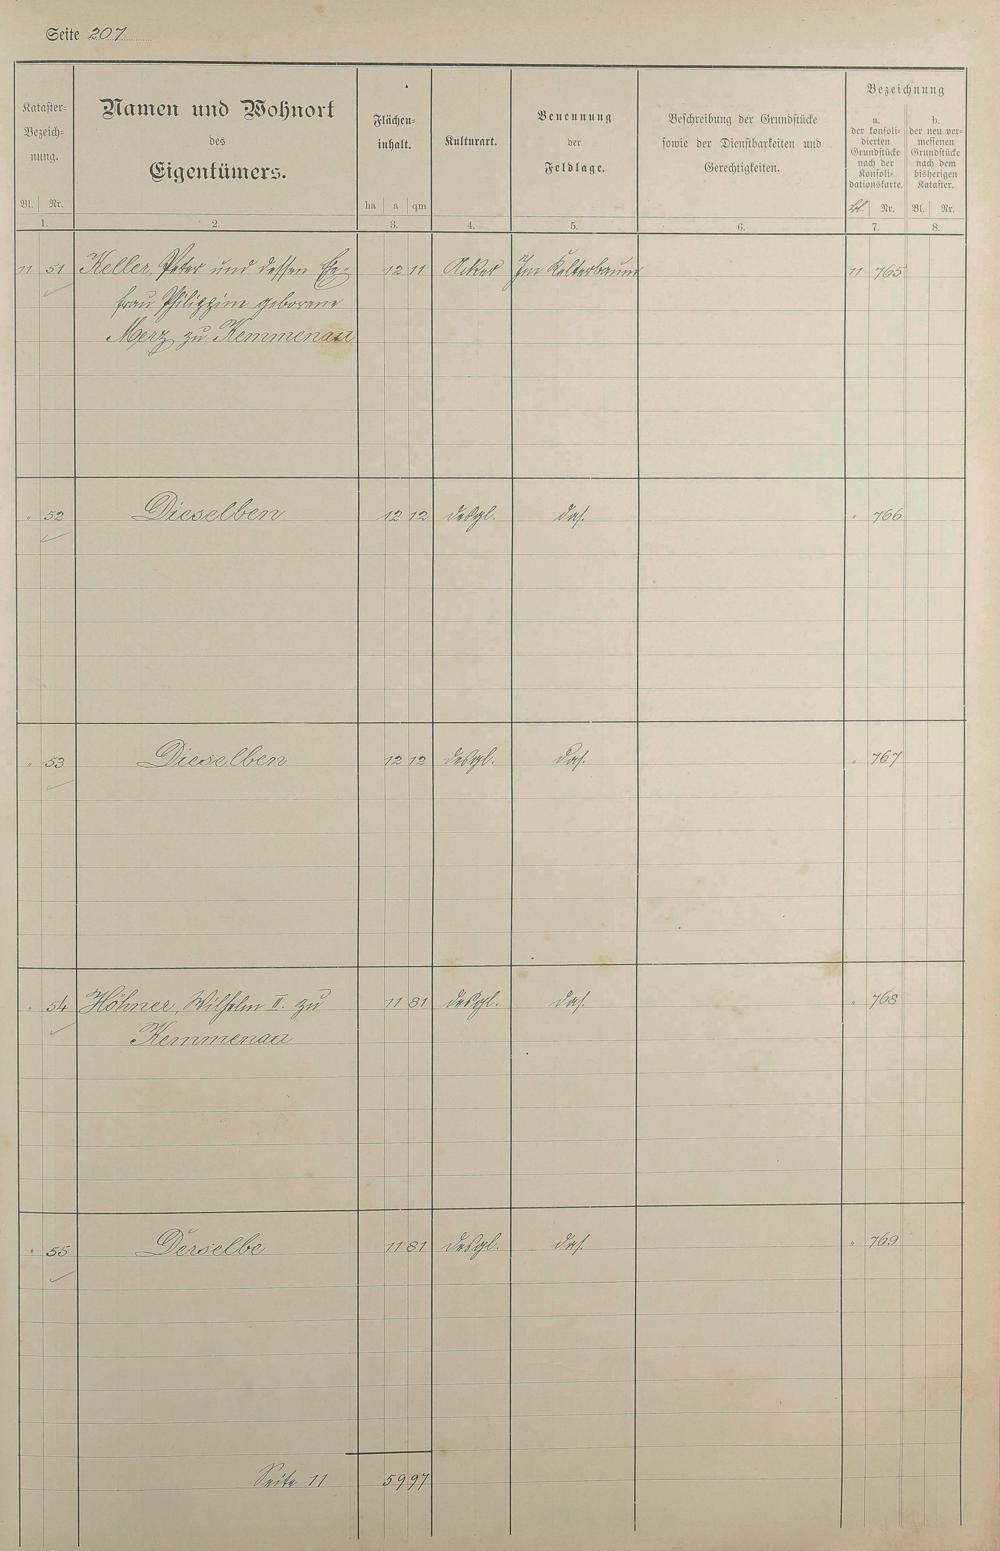 Seite 207
Kataster-Bezeichnung.
Namen und Wohnort
des
Eigentümers.
Flächeninhalt.
Kulturart.
Benennung
der
Feldlage.
Beschreibung der Grundstücke
sowie der Dienstbarkeiten und
Gerechtigkeiten.
Bezeichnung
a.
der konsoli-
dierten
Grundstücke
nach der
Konsoli-
dationskarte.
b.
der neu ver-
messenen
Grundstücke
nach dem
bisherigen
Kataster.
Bl. Nr. ha a qm Bl. Nr. Bl. Nr.
1. 2. 3. 4. 5. 6. 7. 8.
11 51 Keller, Peter und dessen Ehe- 12 11 Acker Im Kelterbaum 11 765
frau Philippine geborene
Merz zu Kemmenau
" 52 Dieselben 12 12 desgl. das. " 766
" 53 Dieselben 12 12 desgl. das. " 767
" 54 Höhner, Wilhelm II. zu 11 81 desgl. das. " 768
Kemmenau
" 55 Derselbe 11 81 desgl. das. " 769
Seite 11 59 97